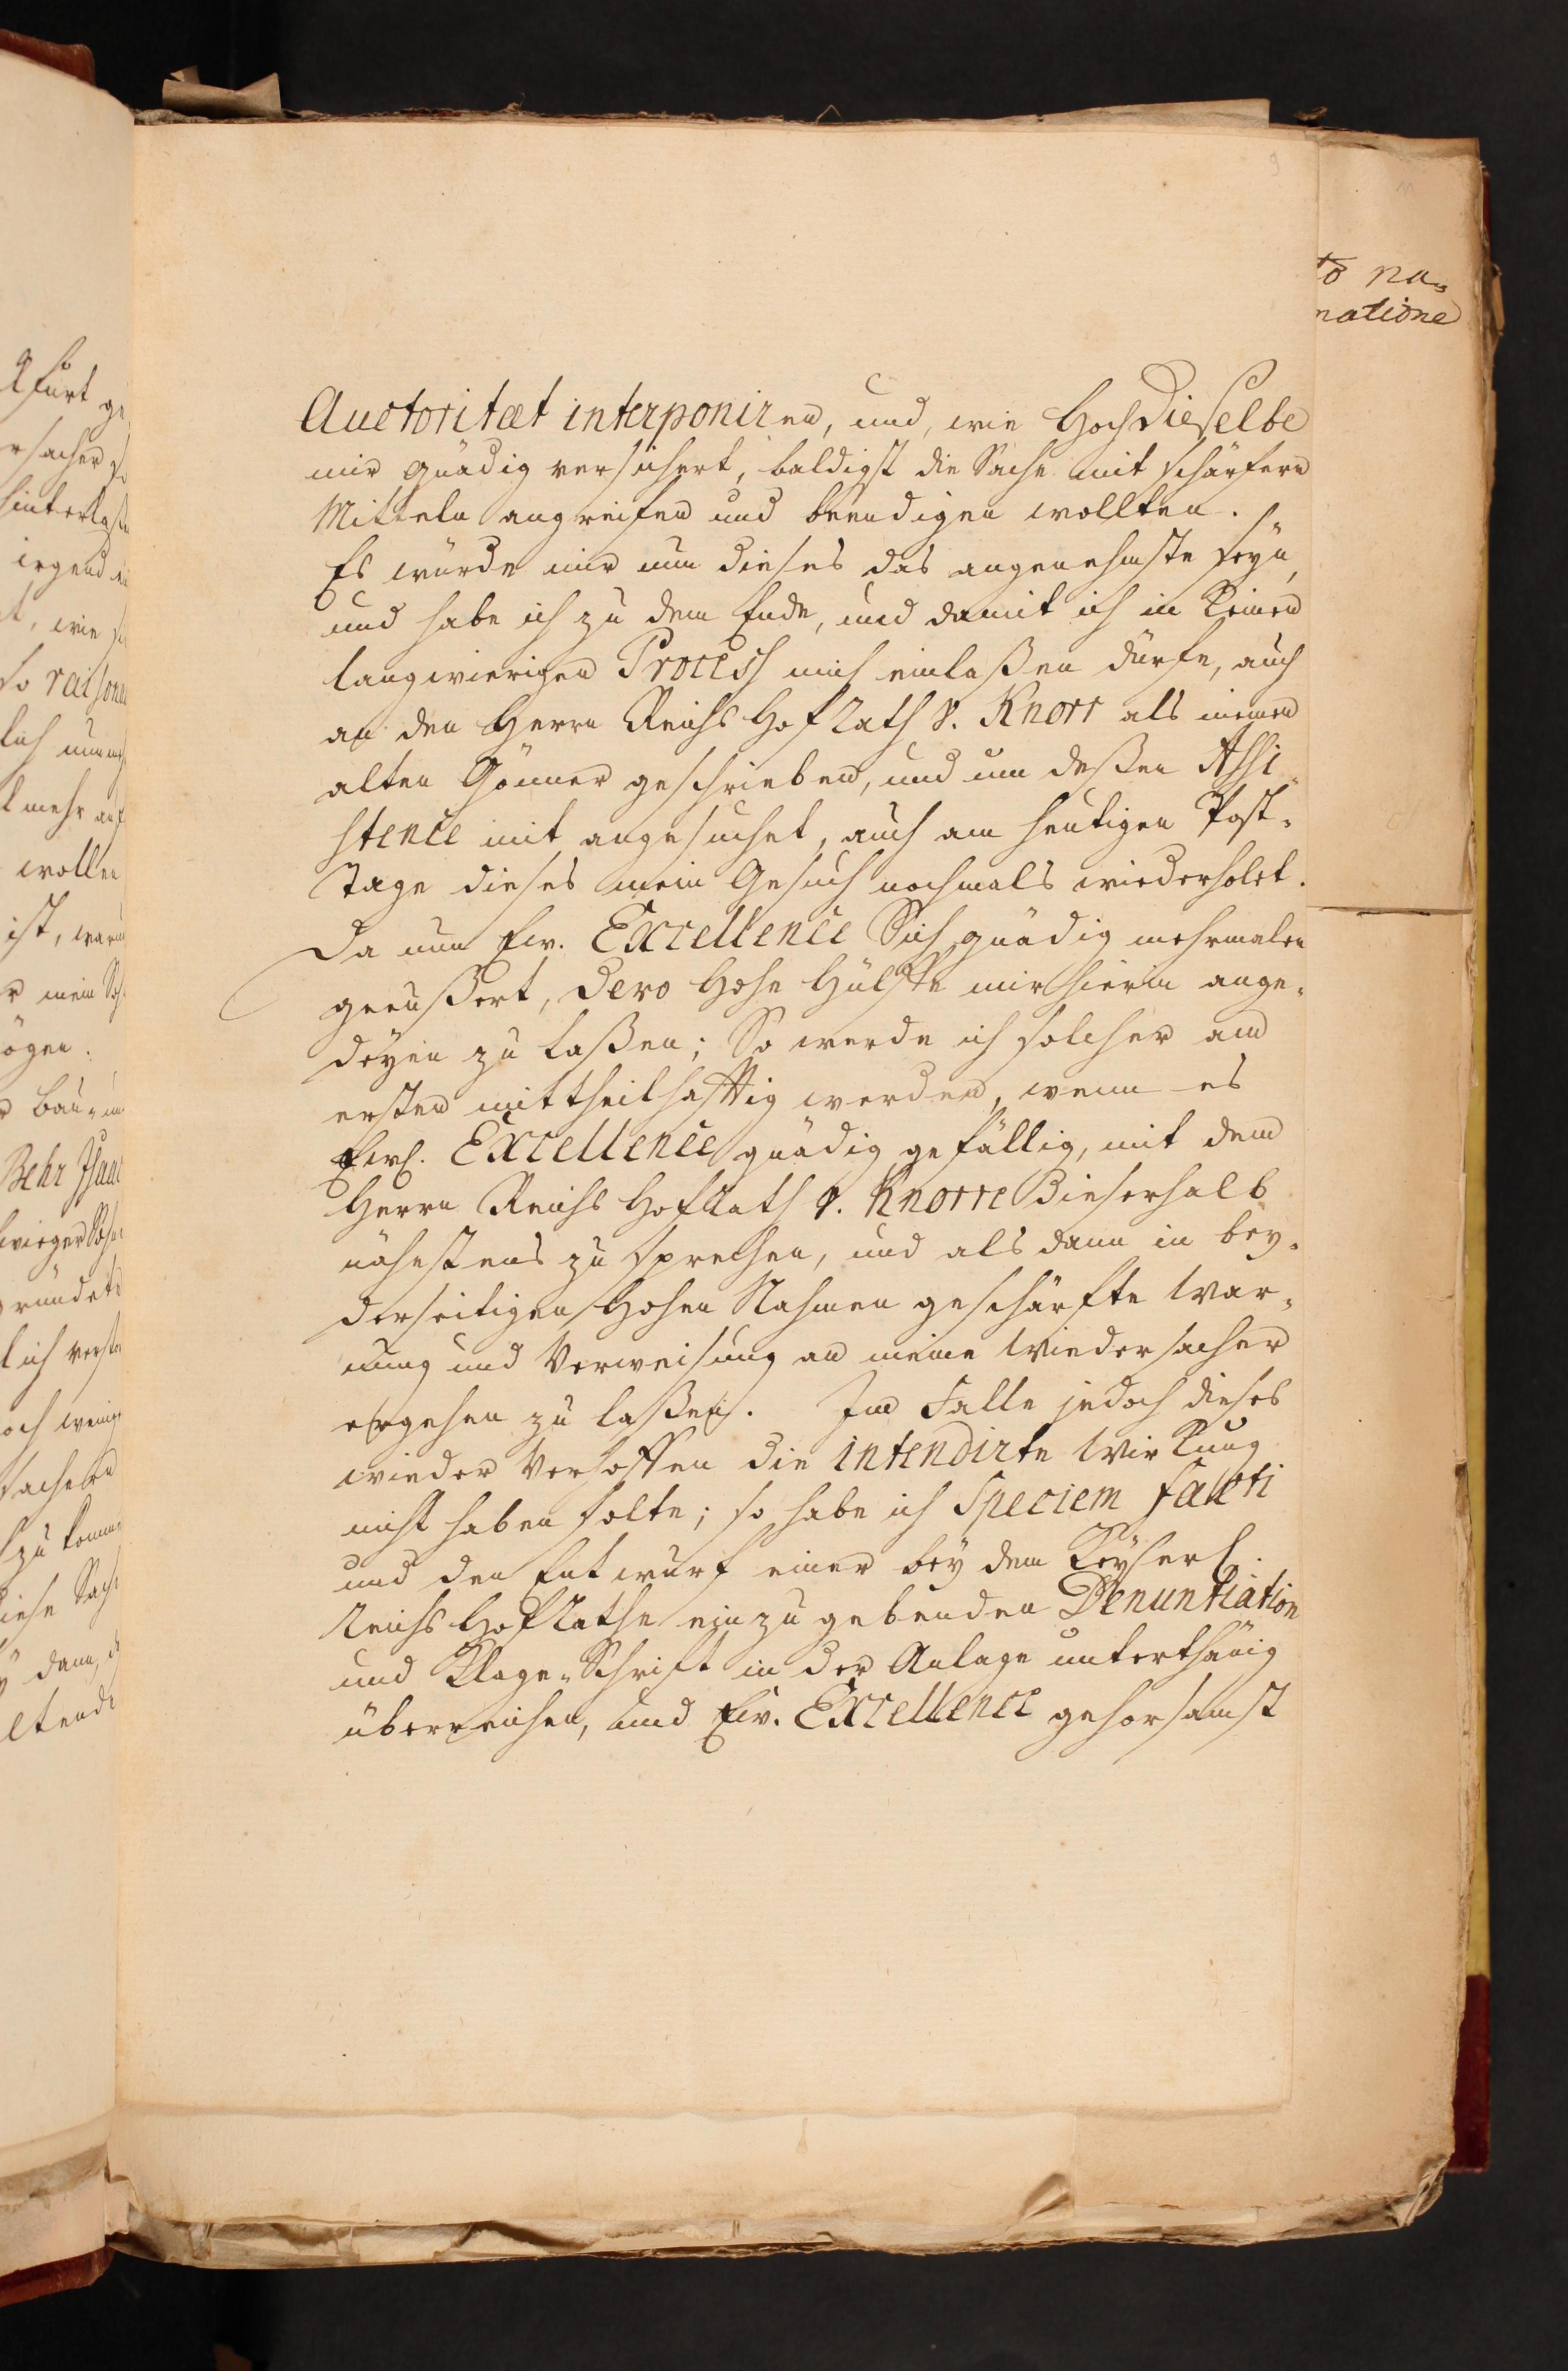 9
Auctoritæt interponiren, und, wie HochDieselbe
mir gnädig versichert, baldigst die Sache mit schärfern
Mitteln angreifen und beendigen wollten.
Es würde mir nun dieses das angenehmste seyn,
und habe ich zu dem Ende, und damit ich in keinen
langwierigen Process mich einlaßen dürfe, auch
an den Herrn Reichs Hof Rath v. Knorr als meinen
alten Gönner geschrieben, und um deßen Assi-
stence mit angesuchet, auch am heutigen Post-
Tage dieses mein Gesuch nochmals wiederholet.
Da nun Ew. Excellence Sich gnädig mehrmalen
geeußert, Dero Hohe Hülffe mir hierin ange-
deyen zu laßen; So werde ich solcher am
ersten mittheilhafftig werden, wenn es
Ewl. Excellence gnädig gefällig, mit dem
Herrn Reichs Hof Rath v. Knorre dieserhalb
nähestens zu sprechen, und als dann in bey-
derseitigen Hohen Nahmen geschärfte War-
nung und Verweisung an meine Wiedersacher
ergehen zu laßen. Im Falle jedoch dieses
wieder Verhoffen die intendirte Wirkung
nicht haben solte; so habe ich Speciem facti
und den Entwurf einer bey dem Keyserl.
Reichs Hof Rathe einzugebenden Denuntiation
und Klage-Schrift in der Anlage unterthänig
überreichen, und Ew. Excellence gehorsamst
to na-
natione
furt ge
rsacher
hinterlaße
irgend
, wie
so raison
lich nun
mehr auf
wollen
ist, warum
mein
ögen.
bau-
Behr Isaac
wieger
ründet
lich
och wenig
sachern
zu komm
iese Sach
dann,
ltend